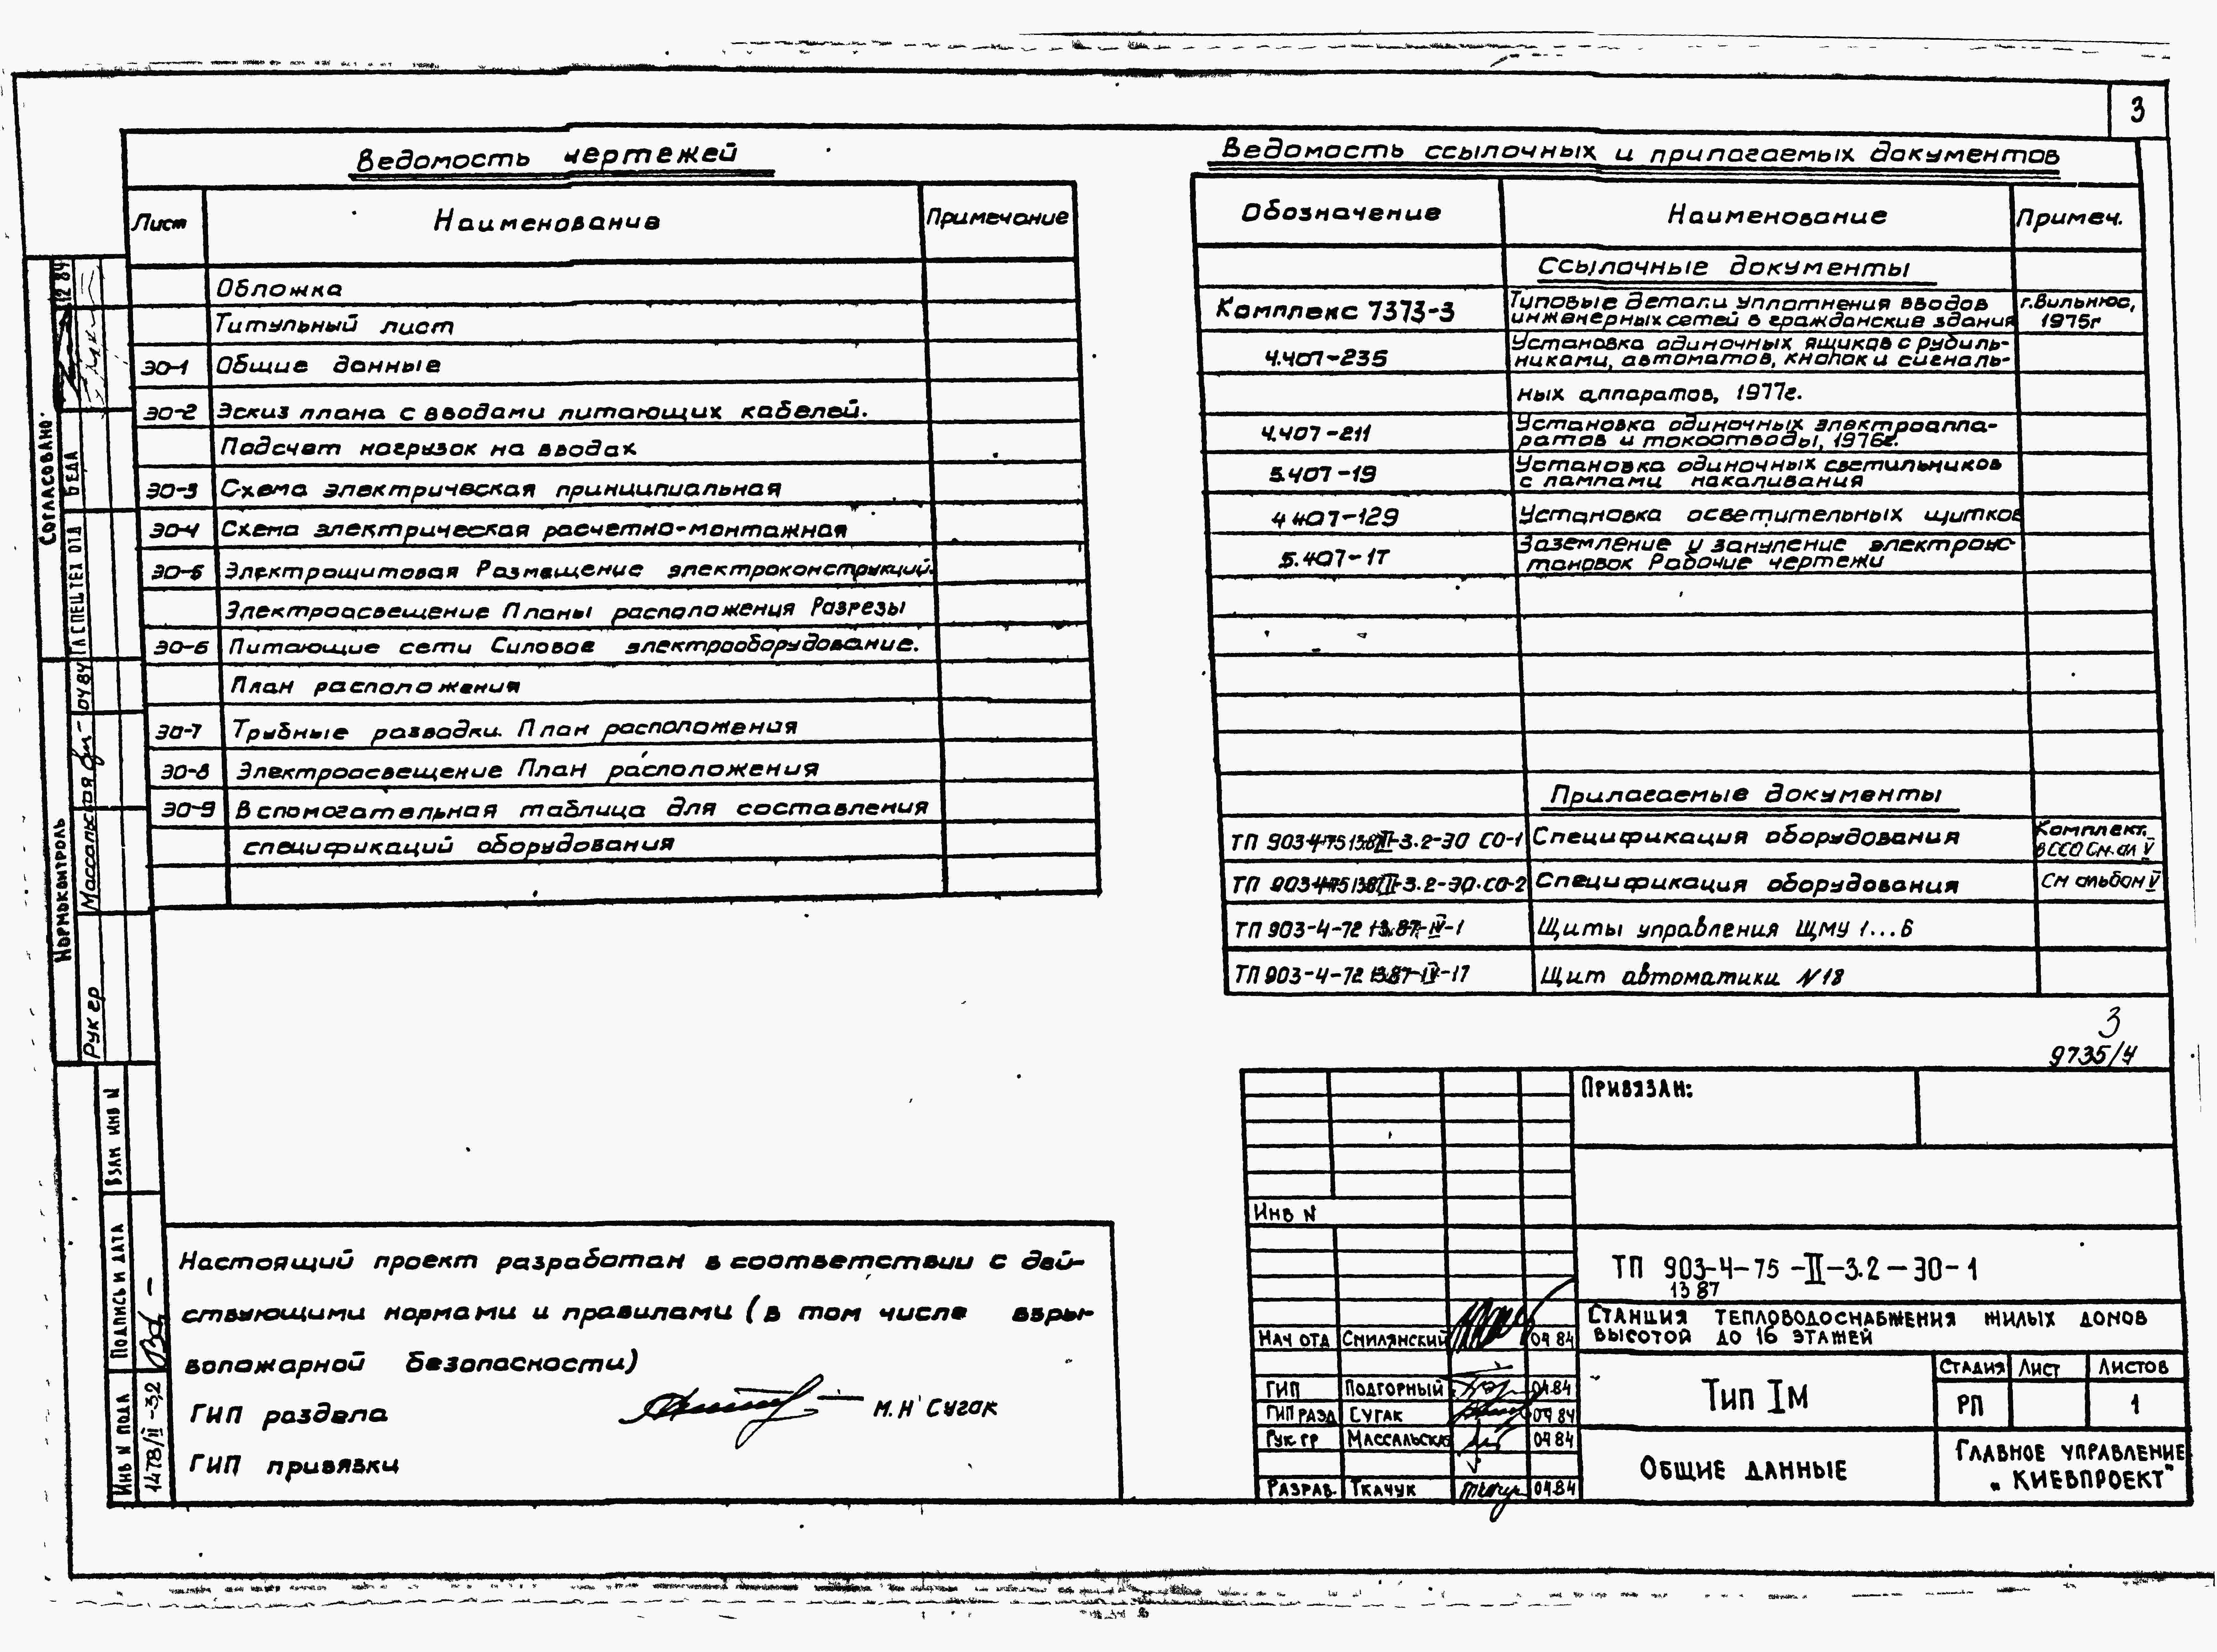 3
Ведомость чертежей
Лист Наименование Примечание
Обложка
Титульный лист
ЭО-1 Общие данные
ЭО-2 Эскиз плана с вводами питающих кабелей.
Подсчет нагрузок на вводах
ЭО-3 Схема электрическая принципиальная
ЭО-4 Схема электрическая расчетно-монтажная
ЭО-5 Электрощитовая Размещение электроконструкций.
Электроосвещение Планы расположения Разрезы
ЭО-6 Питающие сети Силовое электрооборудование.
План расположения
ЭО-7 Трубные разводки. План расположения
ЭО-8 Электроосвещение План расположения
ЭО-9 Вспомогательная таблица для составления
спецификаций оборудования
Ведомость ссылочных и прилагаемых документов
Обозначение Наименование Примеч.
Ссылочные документы
Комплекс 7373-3 Типовые детали уплотнения вводов г. Вильнюс,
инженерных сетей в гражданские здания 1975г
4.407-235 Установка одиночных ящиков с рубиль-
никами, автоматов, кнопок и сигналь-
ных аппаратов, 1977г.
4.407-211 Установка одиночных электроаппа-
ратов и токоотводы, 1976г.
5.407-19 Установка одиночных светильников
с лампами накаливания
4 407-129 Установка осветительных щитков
5.407-1Т Заземление и зануление электроус-
тановок Рабочие чертежи
Прилагаемые документы
ТП 903-4-75 13.87-II-3.2-ЭО СО-1 Спецификация оборудования Комплект.
в ССО См. ал V
ТП 903-4-75 13.87-II-3.2-ЭО.СО-2 Спецификация оборудования См альбом V
ТП 903-4-72 13.87-IV-1 Щиты управления ЩМУ 1...6
ТП 903-4-72 13.87-IV-17 Щит автоматики N 18
3
9735/4
Настоящий проект разработан в соответствии с дей-
ствующими нормами и правилами (в том числе взры-
вопожарной безопасности)
ГИП раздела М.Н Сугак
ГИП привязки
Привязан:
Инв N
ТП 903-4-75-II-3.2-ЭО-1
13 87
Станция тепловодоснабжения жилых домов
высотой до 16 этажей
Нач отд Смилянский 04 84
ГИП Подгорный 04.84
ГИП разд Сугак 04 84
Рук. гр Массальская 04 84
Разраб. Ткачук 04.84
Тип Iм
Стадия Лист Листов
РП 1
Общие данные
Главное управление
„Киевпроект"
Согласовано
Гл спец тех отд Беда 12 84
Нормоконтроль
Рук гр Массальская 04 84
Взам инв N
Подпись и дата
Инв N подл 1478/II-3.2